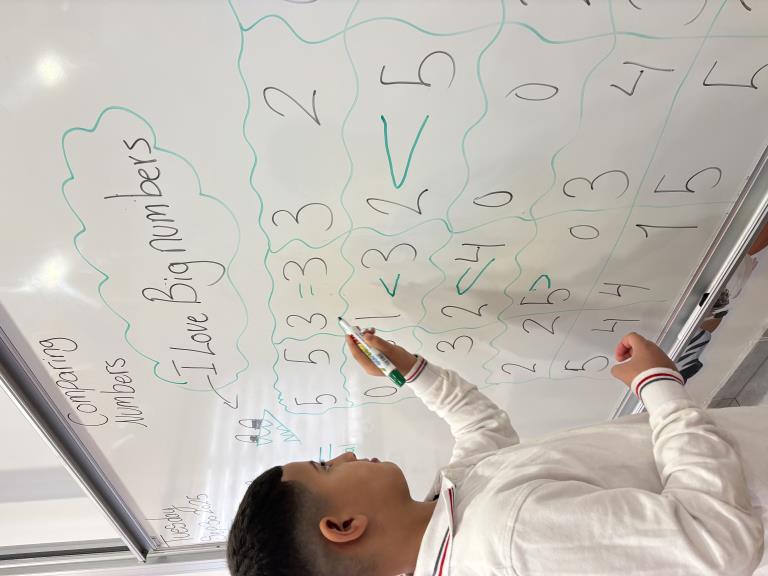 Tuesday
Comparing
Numbers
I Love Big numbers
5 5 3 = 3 3 2
0 1 < 3 2 < 5
3 2 < 4 0 0
2 2 5 < 0 3 4
5 4 4 1 5 5